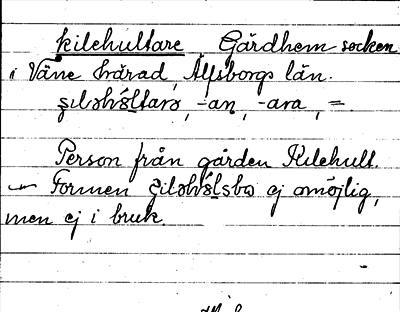 kilehultare Gärdhem socken
i Väne härad, Älfsborgs län.
-an, -ara, =
Person från gården Kilehult.
Formen ej omöjlig,
men ej i bruk.